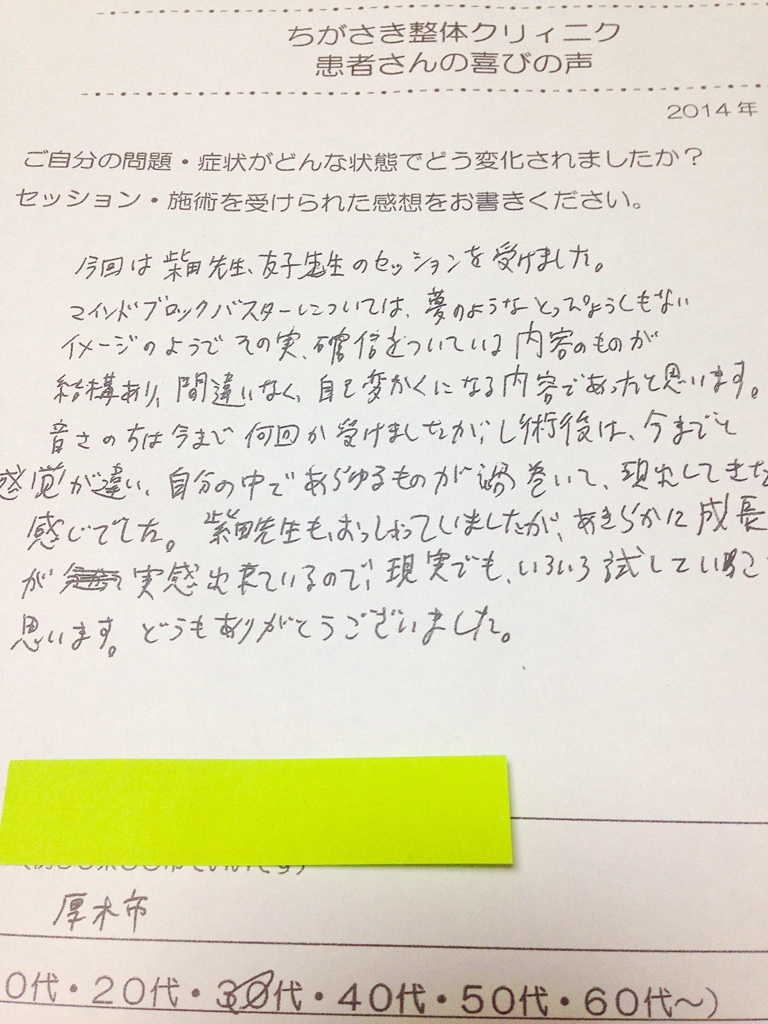 ちがさき整体クリィニク
患者さんの喜びの声
2014年
ご自分の問題・症状がどんな状態でどう変化されましたか?
セッション・施術を受けられた感想をお書きください。
今回は柴田先生、友子先生のセッションを受けました。
マインドブロックバスターについては、夢のようなとっぴょうしもない
イメージのようでその実、確信をついている内容のものが
結構あり、間違いなく、自己変かくになる内容であったと思います。
音さのちは今まで何回か受けましたが、し術後は、今までと
感覚が違い、自分の中であらゆるものが渦巻いて、現出してきた
感じでした。柴田先生も、おっしゃっていましたが、あきらかに成長
が実感出来ているので、現実でも、いろいろ試していこ
思います。どうもありがとうございました。
厚木市
0代・20代・30代・40代・50代・60代～)